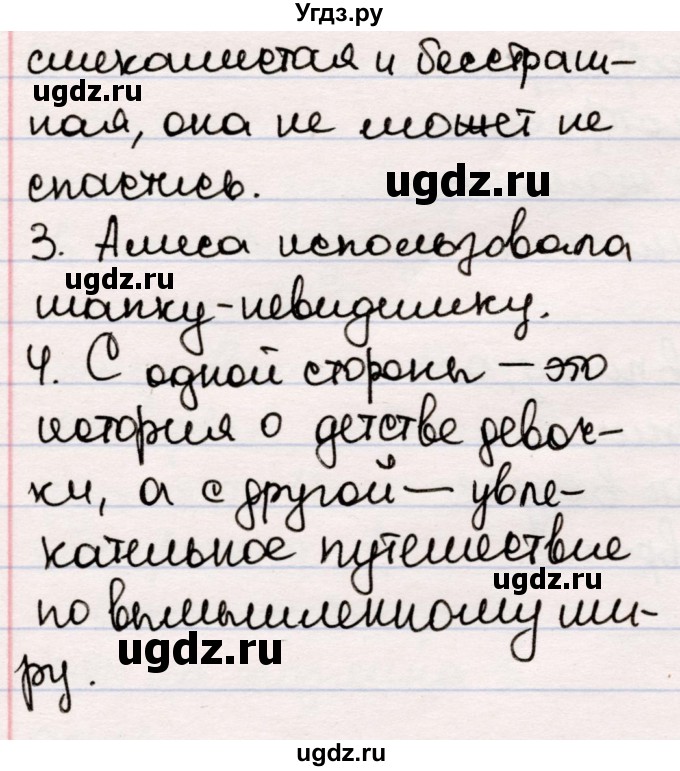 Угдз.ру
смекалистая и бесстраш-
ugdz.ru
ная, она не может не
спастись. ugdz.ru
3. Алиса использовала
ugdz.ru
шапку-невидимку.
4. С одной стороны — это
история о детстве девоч-
ки, а с другой — увле-
кательное путешествие
ugdz.ru
по вымышленному ми-
ugdz.ru
ру.
ugdz.ru